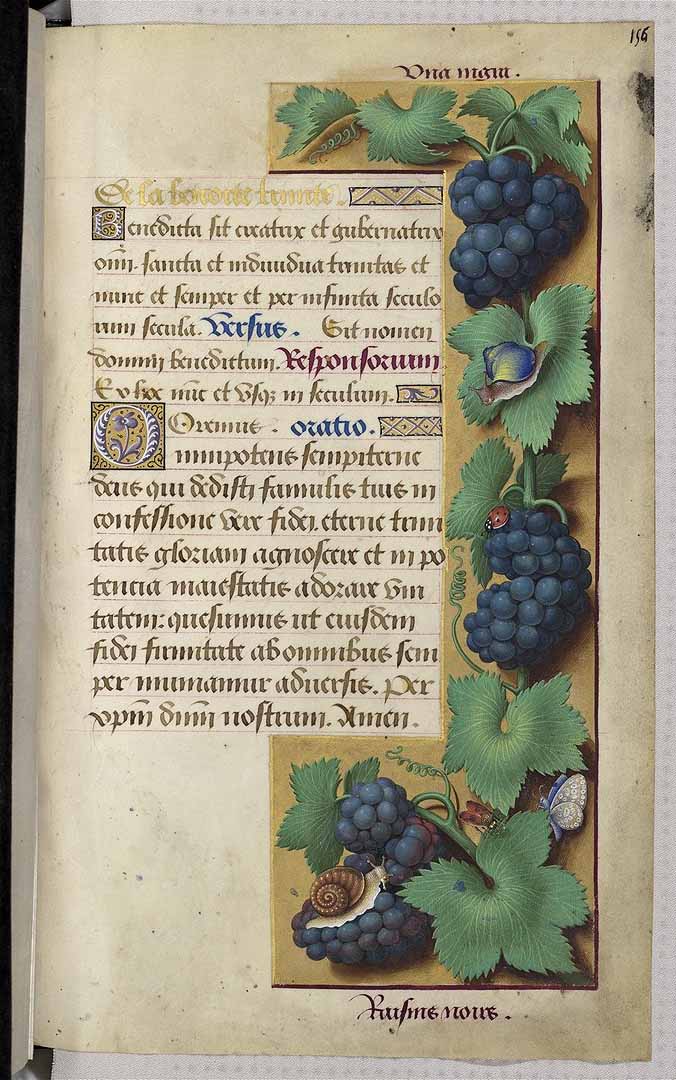 156
Vua nigra.
De la benoite trinite.
Benedicta sit creatrix et gubernatrix
omniū. sancta et indiuidua trinitas et
nunc et semper et per infinita seculo
rum secula. Versus. Sit nomen
domini benedictum. Responsorium
Ex hoc nūc et vsq; in seculum.
Oremus. oratio.
Omnipotens sempiterne
deus qui dedisti famulis tuis in
confessione vere fidei. eterne trini
tatis gloriam agnoscere et in po
tencia maiestatis adorare vni
tatem: quesumus ut eiusdem
fidei firmitate ab omnibus sem
per muniamur aduersis. Per
xpm̄ dnm̄ nostrum. Amen.
Raisins noirs.